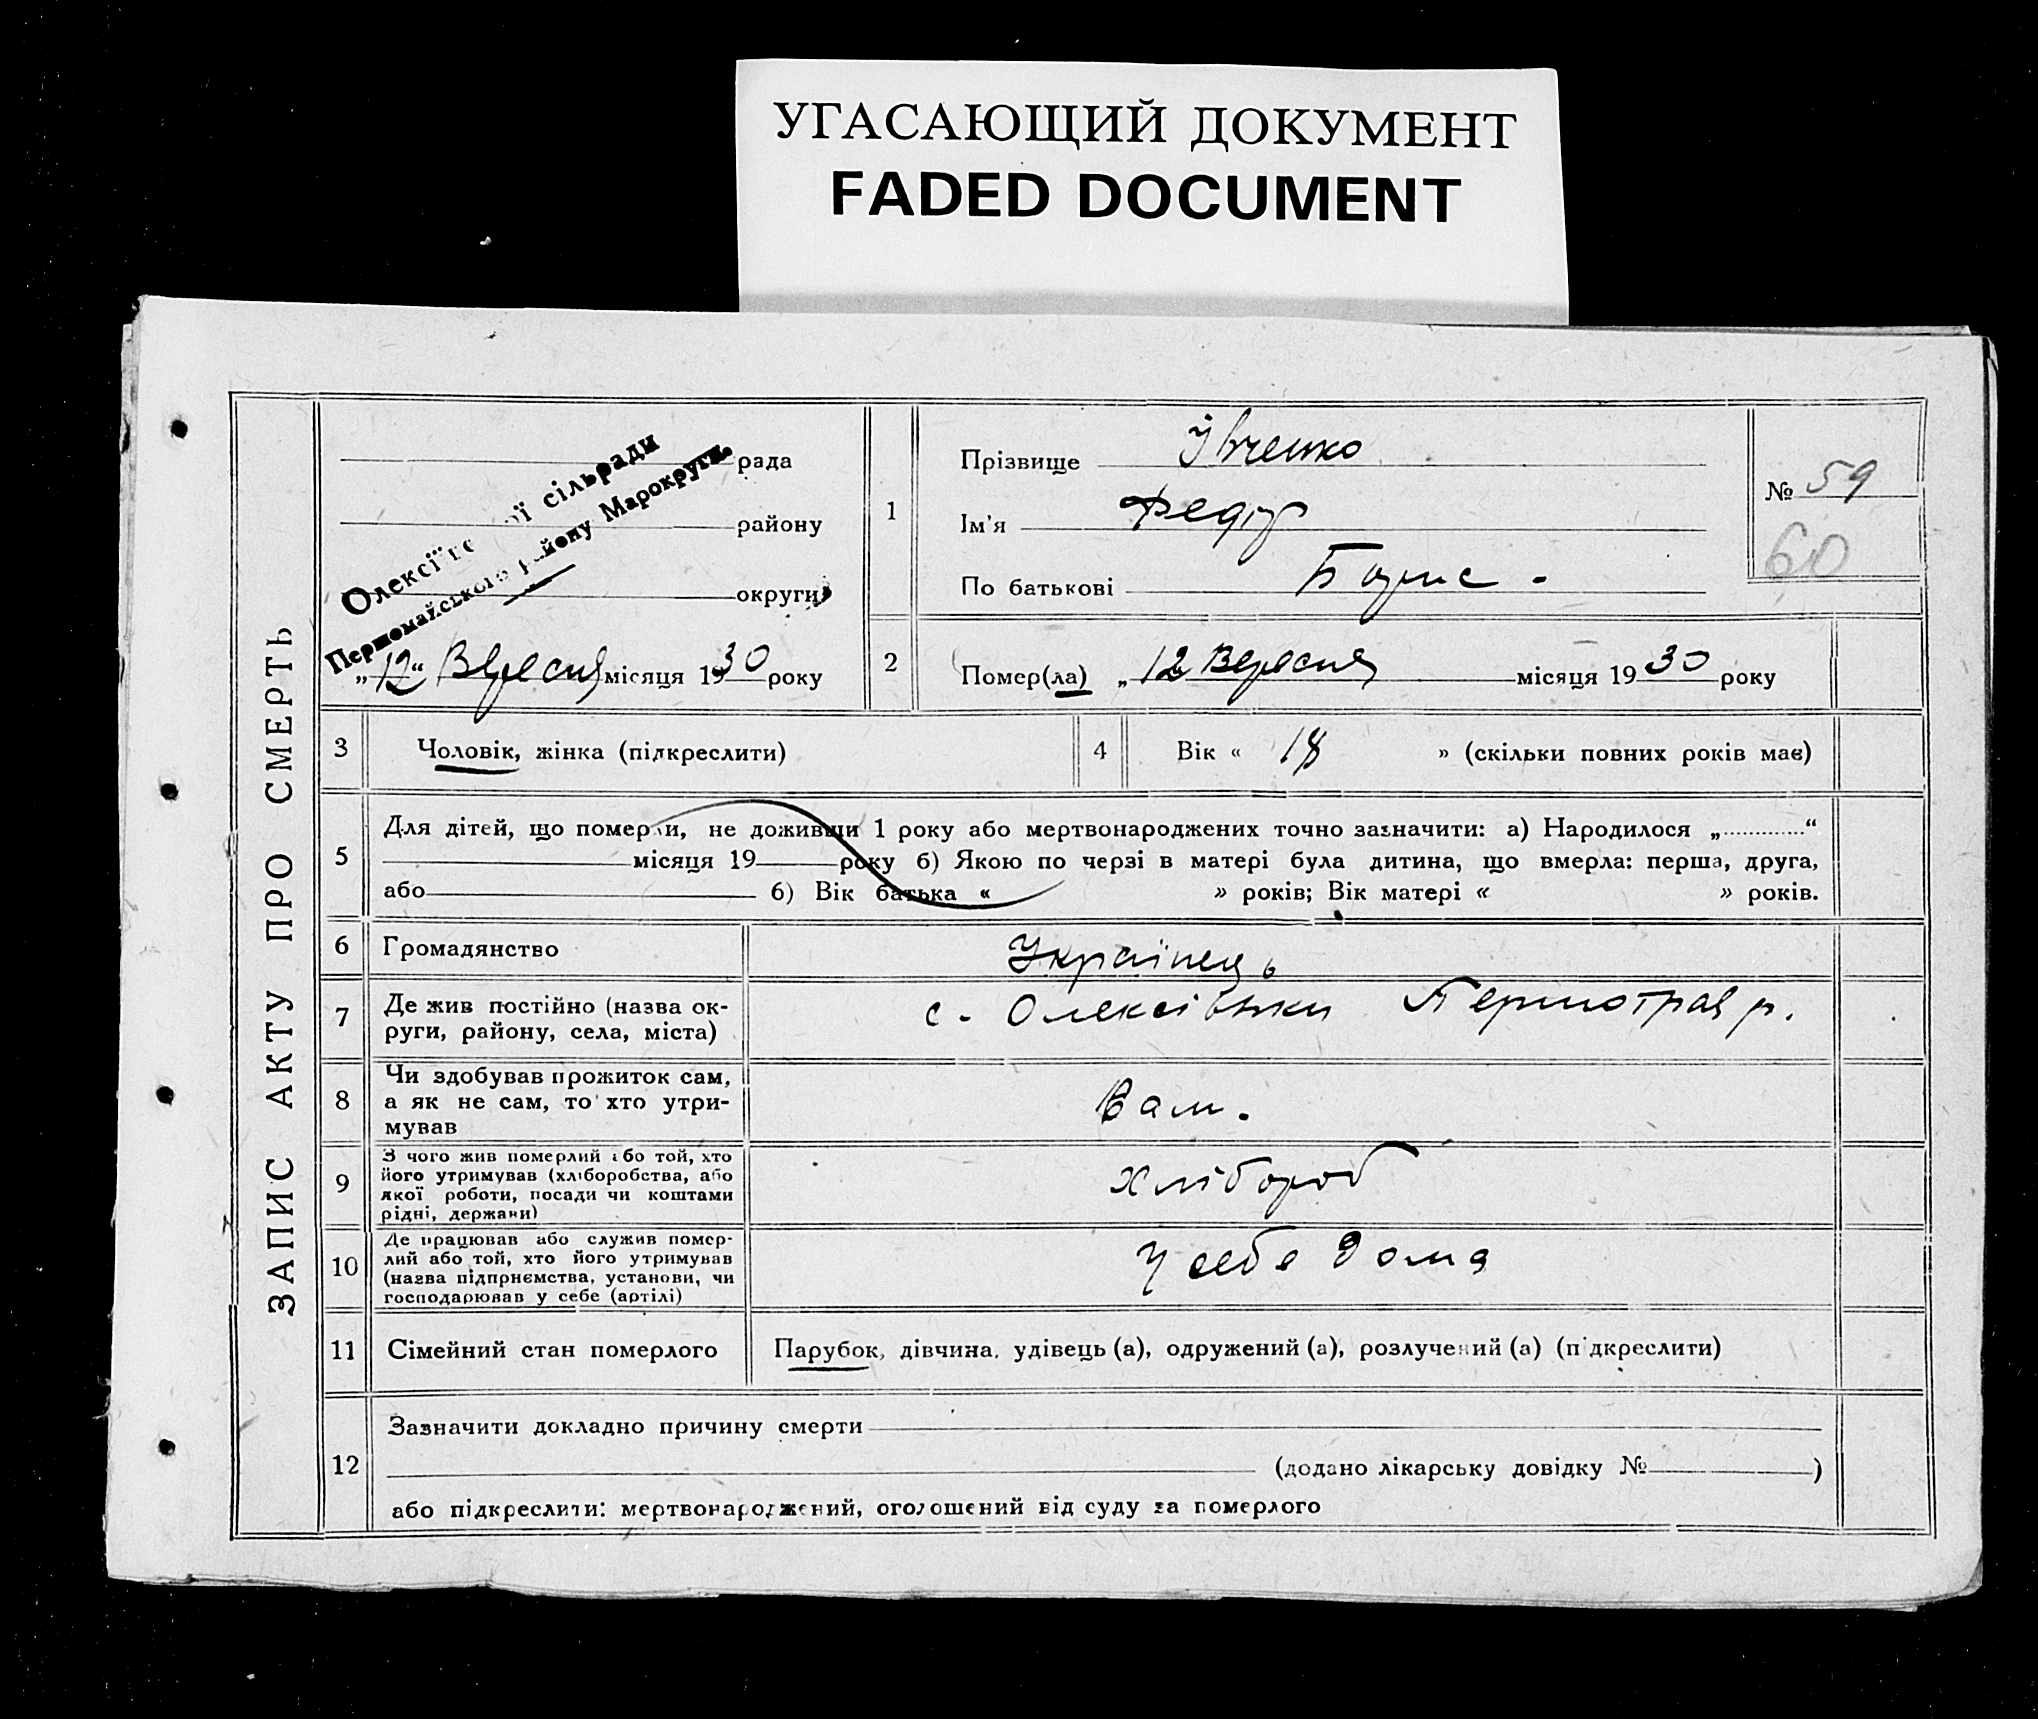 УГАСАЮЩИЙ ДОКУМЕНТ
FADED DOCUMENT
ЗАПИС АКТУ ПРО СМЕРТЬ
рада
району
округи
сільради
Першомайського району Марокруги.
„12“ Вересня місяця 1930 року
1
Прізвище Івченко
Ім'я Федір
По батькові Борис.
№ 59
60
2
Помер(ла) „12 Вересня місяця 1930 року
3
Чоловік, жінка (підкреслити)
4
Вік « 18 » (скільки повних років має)
5
Для дітей, що померли, не доживши 1 року або мертвонароджених точно зазначити: а) Народилося „ “
місяця 19 року б) Якою по черзі в матері була дитина, що вмерла: перша, друга,
або б) Вік батька « » років; Вік матері « » років.
6
Громадянство
Українець
7
Де жив постійно (назва ок-
руги, району, села, міста)
с. Олексівки р.
8
Чи здобував прожиток сам,
а як не сам, то хто утри-
мував
Сам.
9
З чого жив померлий або той, хто
його утримував (хліборобства, або
якої роботи, посади чи коштами
рідні, держави)
Хлібороб
10
Де працював або служив помер-
лий або той, хто його утримував
(назва підпрнємства, установи, чи
господарював у себе (артілі)
У себе дома
11
Сімейний стан померлого
Парубок, дівчина, удівець (а), одружений (а), розлучений (а) (підкреслити)
12
Зазначити докладно причину смерти
(додано лікарську довідку № )
або підкреслити: мертвонароджений, оголошений від суду за померлого